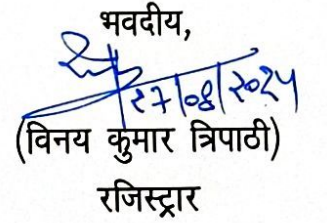 भवदीय,
२७/०8/२०२५
(विनय कुमार त्रिपाठी)
रजिस्ट्रार